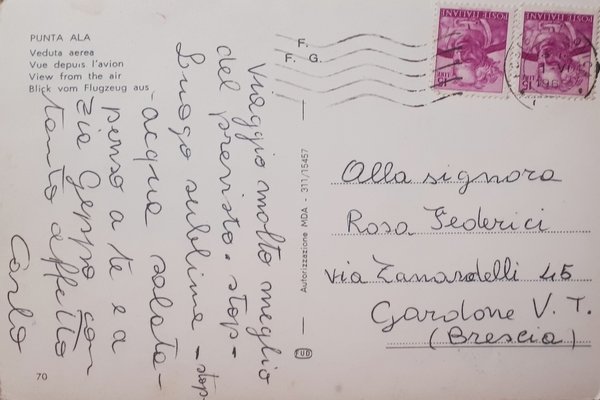 PUNTA ALA
Veduta aerea
Vue depuis l'avion
View from the air
Blick vom Flugzeug aus
F.
F. G.
POSTE ITALIANE
LIRE 15
POSTE ITALIANE
LIRE 15
Viaggio molto meglio
del previsto - stop -
Luogo sublime - stop
- acqua salata -
penso a te e a
zia Geppo con
tanto affetto
Carlo
Autorizzazione MDA - 311/15457
Alla signora
Rosa Federici
via Zanardelli 45
Gardone V. T.
(Brescia)
70